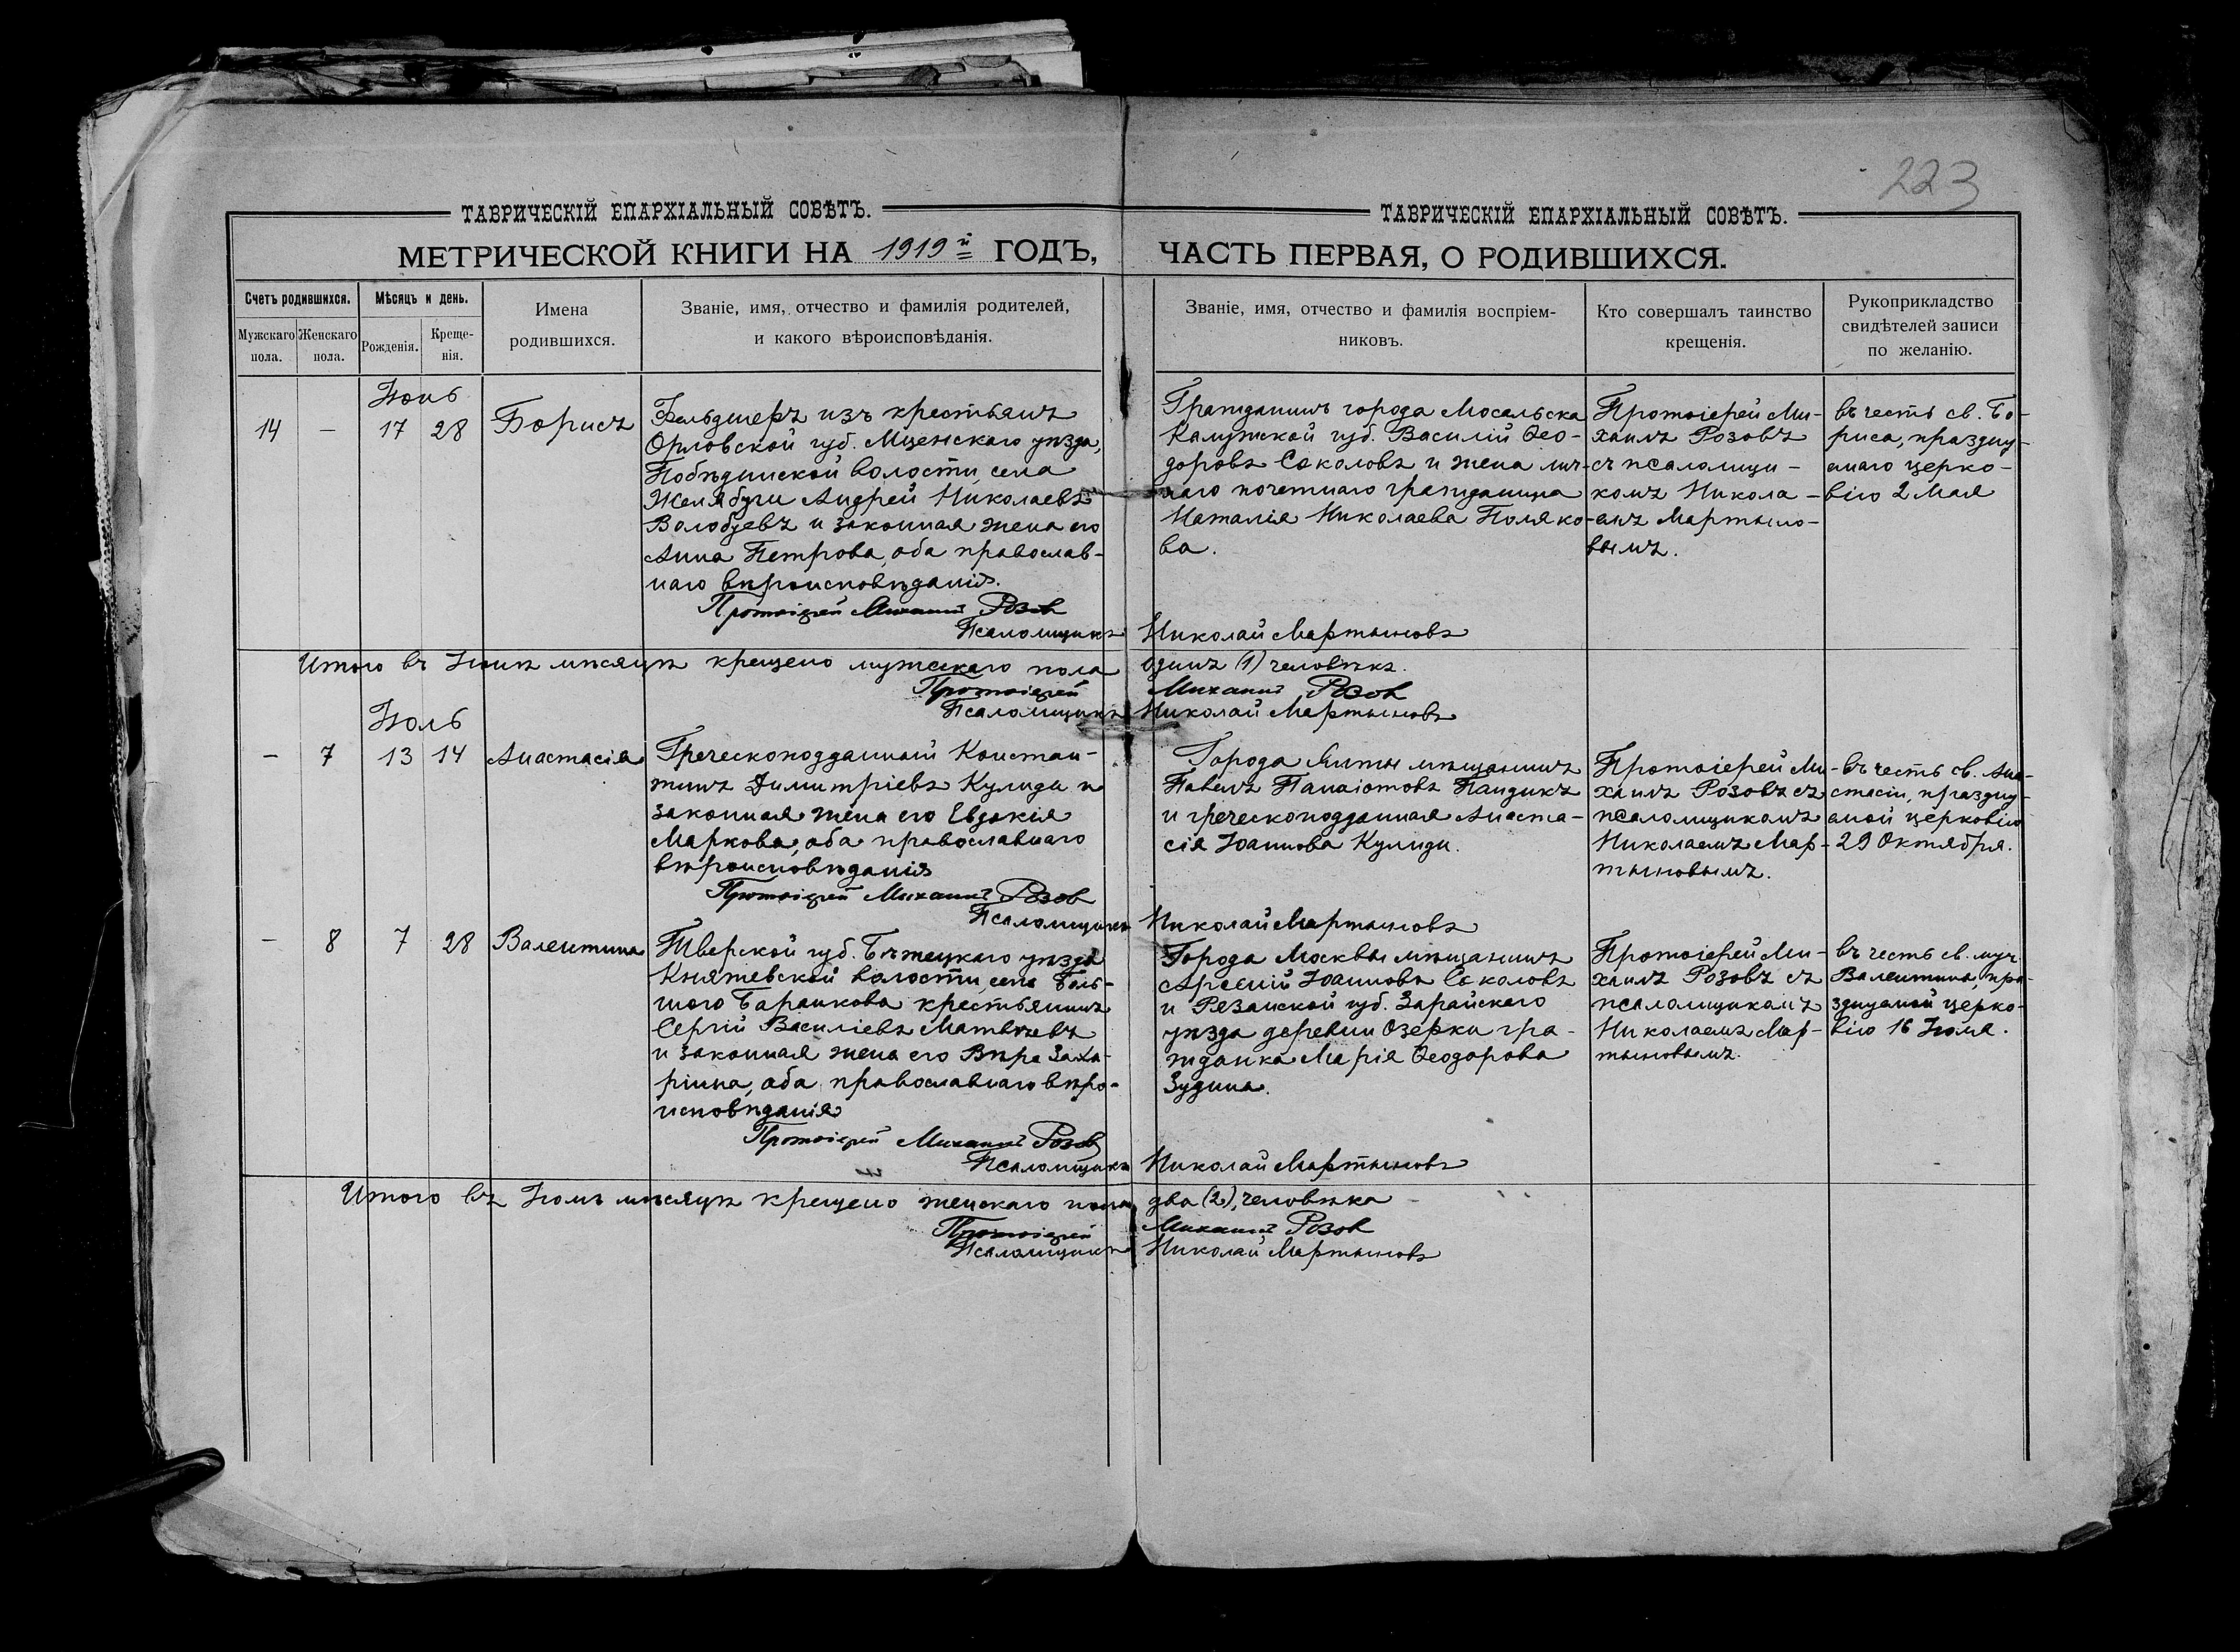 223
ТАВРИЧЕСКІЙ ЕПАРХІАЛЬНЫЙ СОВѢТЪ.
МЕТРИЧЕСКОЙ КНИГИ НА 1919й ГОДЪ,
Счетъ родившихся.
Мѣсяцъ и день.
Мужскаго пола.
Женскаго пола.
Рожденія.
Креще-
нія.
Имена
родившихся.
Званіе, имя, отчество и фамилія родителей,
и какого вѣроисповѣданія.
ТАВРИЧЕСКІЙ ЕПАРХІАЛЬНЫЙ СОВѢТЪ.
ЧАСТЬ ПЕРВАЯ, О РОДИВШИХСЯ.
Званіе, имя, отчество и фамилія воспріем-
никовъ.
Кто совершалъ таинство
крещенія.
Рукоприкладство
свидѣтелей записи
по желанію.
Іюнь
14 — 17 28 Борисъ
Фельдшеръ изъ крестьянъ
Орловской губ. Мценскаго уѣзда,
Побѣдинской волости, села
Желябуги Андрей Николаевъ
Волобуевъ и законная жена его
Анна Петрова, оба православ-
наго вѣроисповѣданія.
Протоіерей Михаилъ Розов
Псаломщикъ Николай Мартыновъ
Гражданинъ города Мосальска
Калужской губ. Василій Ѳео-
доровъ Соколовъ и жена лич-
наго почетнаго гражданина
Наталія Николаева Поляко-
ва.
Протоіерей Ми-
хаилъ Розовъ
съ псаломщи-
комъ Никола-
емъ Мартыно-
вымъ.
въ честь св. Бо-
риса, праздну-
емаго церко-
вію 2 Мая
Итого въ Іюнѣ мѣсяцѣ крещено мужескаго пола одинъ (1) человѣкъ.
Протоіерей Михаилъ Розов
Псаломщикъ Николай Мартыновъ
Іюль
— 7 13 14 Анастасія
Греческоподданный Констан-
тинъ Димитріевъ Кулиди и
законная жена его Евдокія
Маркова, оба православнаго
вѣроисповѣданія
Протоіерей Михаилъ Розов
Псаломщикъ Николай Мартыновъ
Города Ялты мѣщанинъ
Павелъ Панаіотовъ Пандикъ
и греческоподданная Анаста-
сія Іоаннова Кулиди.
Протоіерей Ми-
хаилъ Розовъ съ
псаломщикомъ
Николаемъ Мар-
тыновымъ.
въ честь св. Ана-
стасіи, праздну-
емой церковію
29 Октября.
— 8 7 28 Валентина
Тверской губ. Бѣжецкаго уѣзда
Княжевской волости, села Боль-
шого Баранкова крестьянинъ
Сергій Василіевъ Матвѣевъ
и законная жена его Вѣра Заха-
ріина, оба православнаго вѣро-
исповѣданія
Протоіерей Михаилъ Розов
Псаломщикъ Николай Мартыновъ
Города Москвы мѣщанинъ
Арсеній Іоанновъ Соколовъ
и Рязанской губ. Зарайскаго
уѣзда деревни Озерки гра-
жданка Марія Ѳеодорова
Зудина.
Протоіерей Ми-
хаилъ Розовъ съ
псаломщикомъ
Николаемъ Мар-
тыновымъ.
въ честь св. муч.
Валентины, пра-
зднуемой церко-
вію 16 Іюля.
Итого въ Іюлѣ мѣсяцѣ крещено женскаго пола два (2) человѣка
Протоіерей Михаилъ Розов
Псаломщикъ Николай Мартыновъ